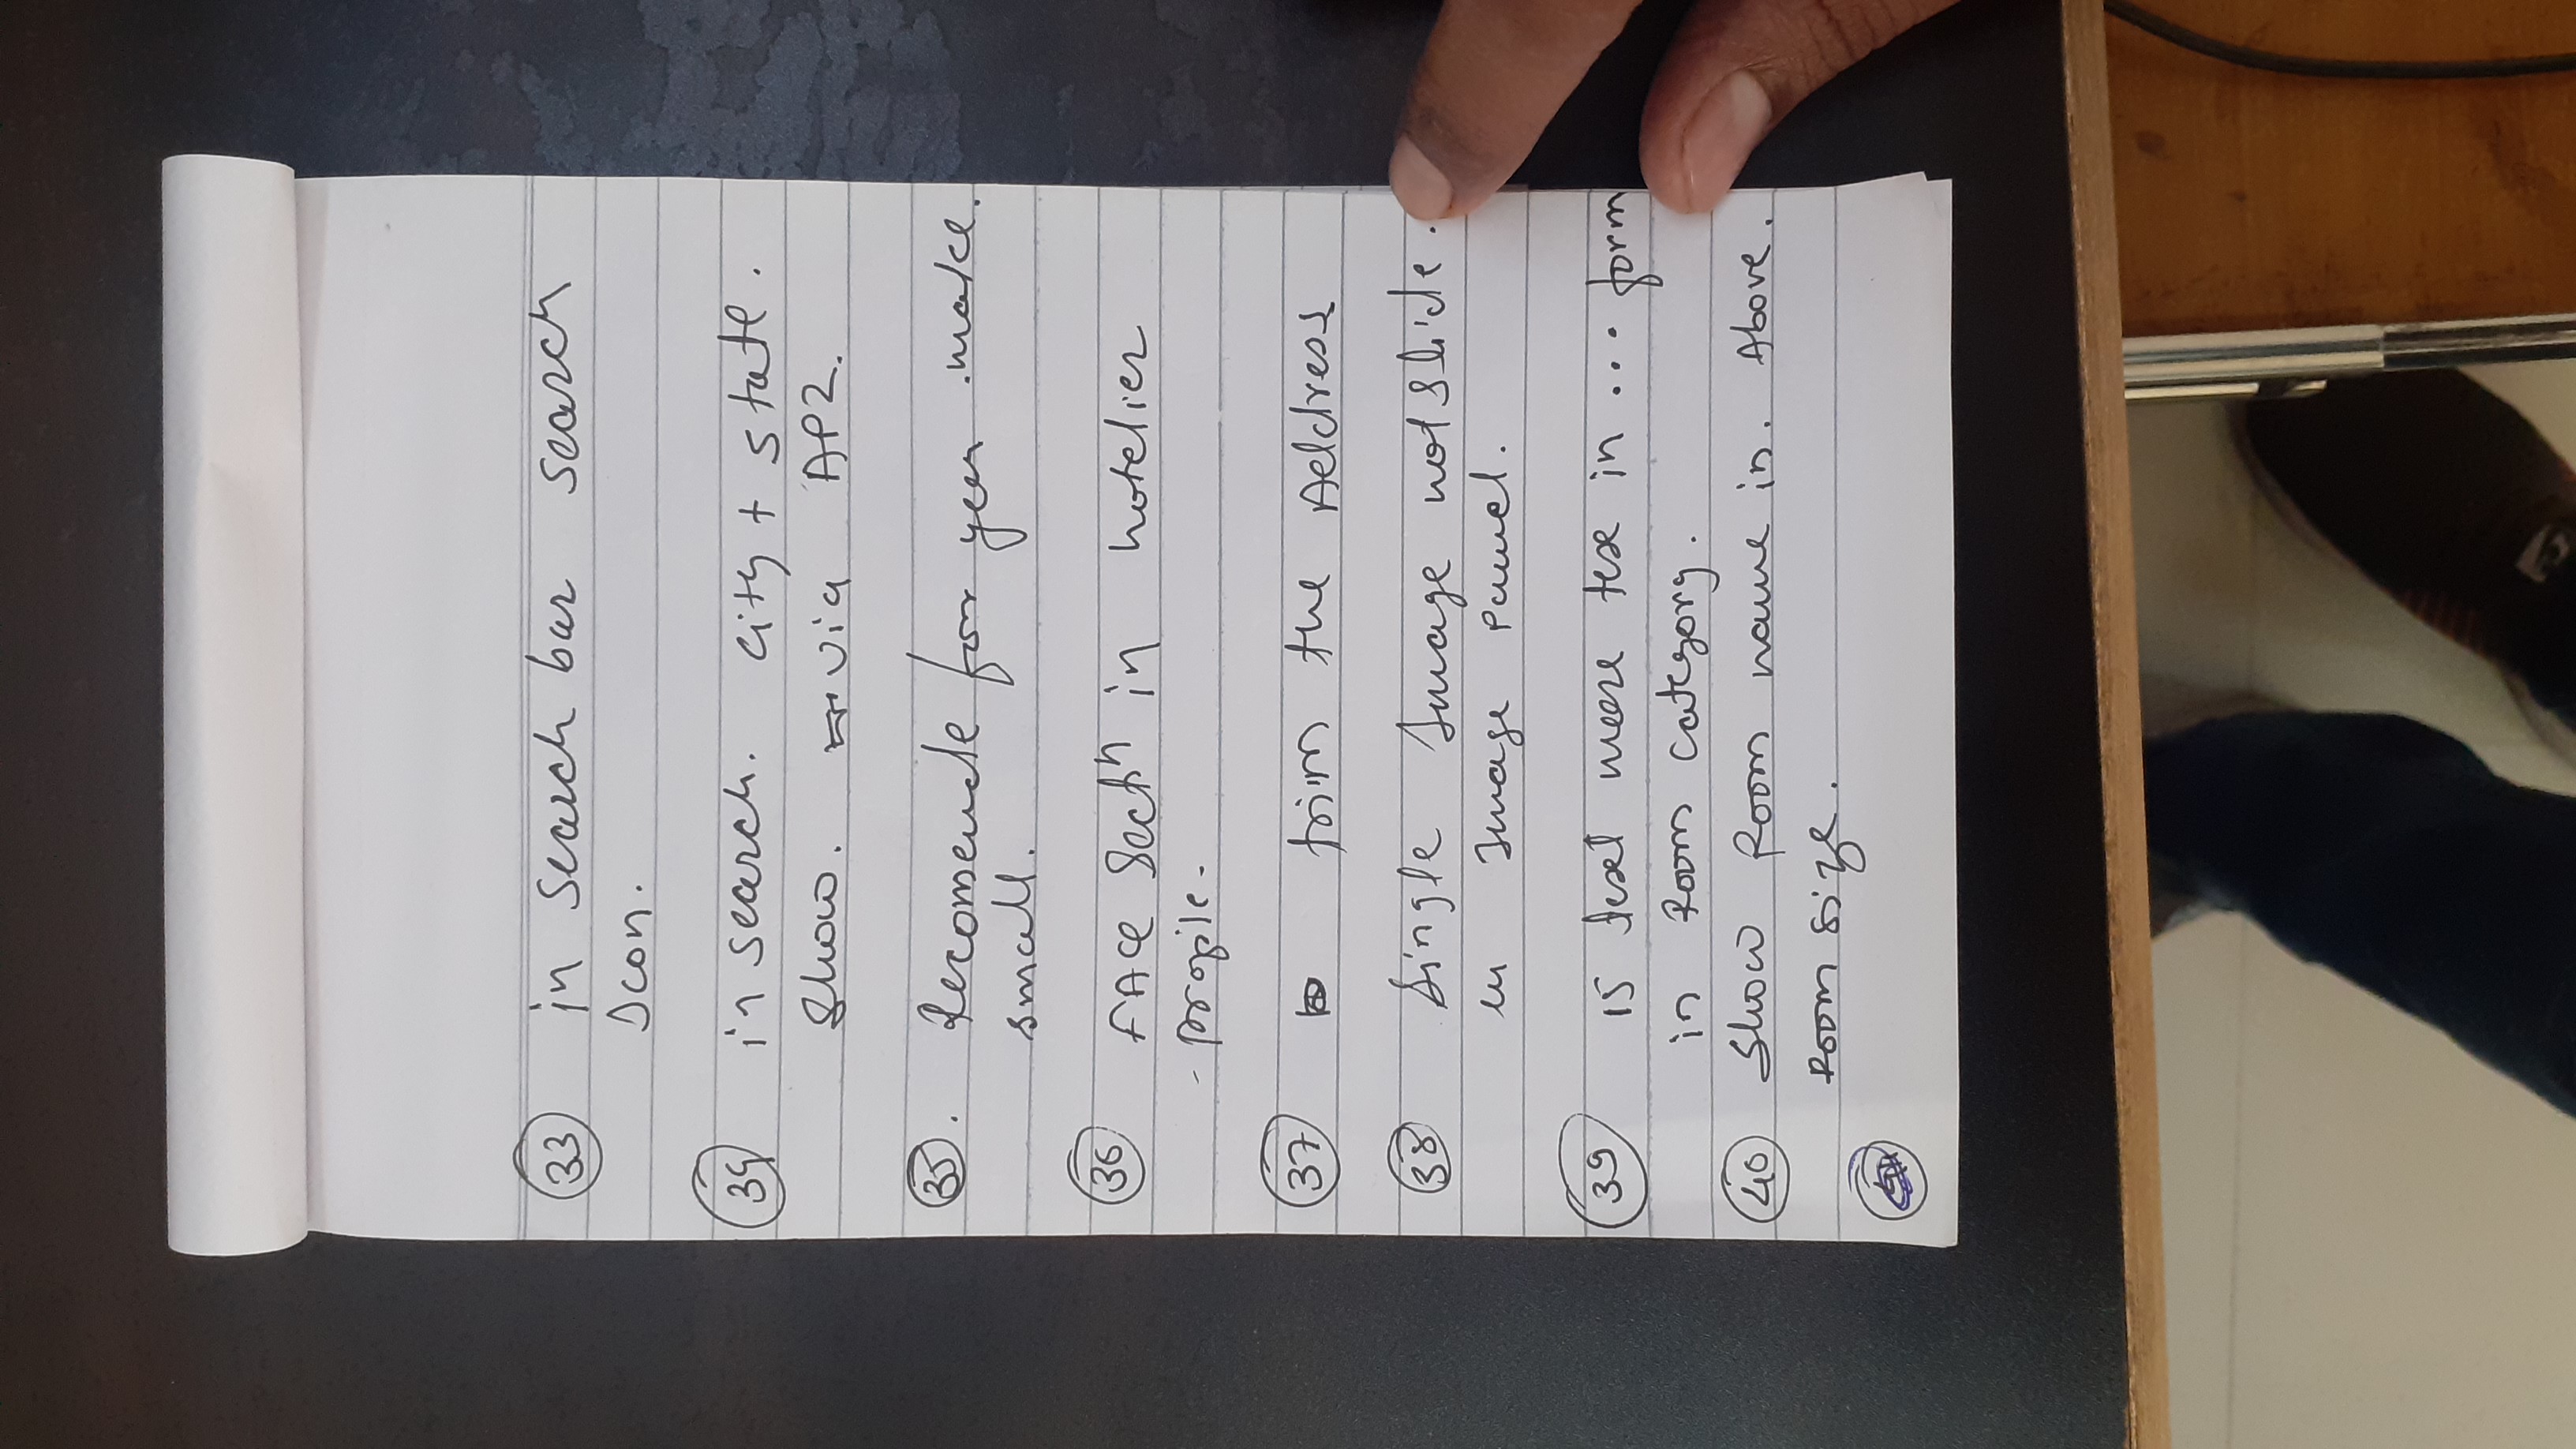 33 in search bar search
Icon.
34 in search. city + state.
show. via API.
35. Recomende for you make.
small.
36 FACE Sectn in hotelier
- profile.
37 trim the Address
38 Single Image not slide.
in Image pannel.
39 15 text more tex in ... form
in Room category.
40 Show Room name in. Above.
Room size.